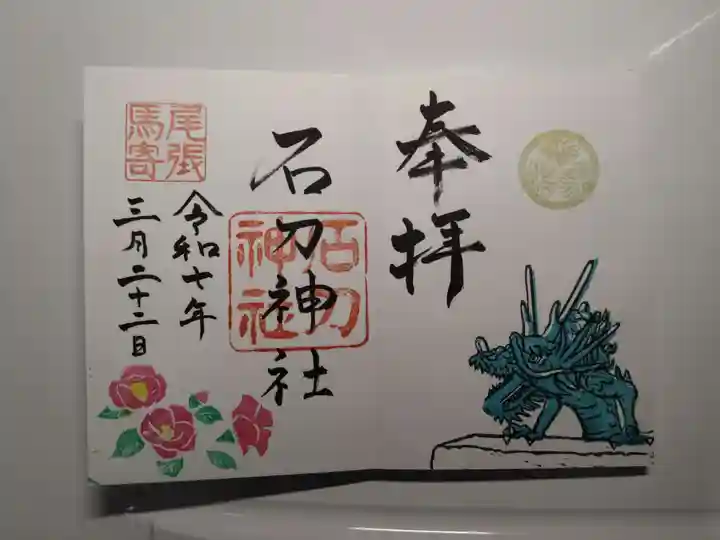 奉拝
石刀神社
石刀
神社
令和七年
三月二十二日
尾張
馬寄